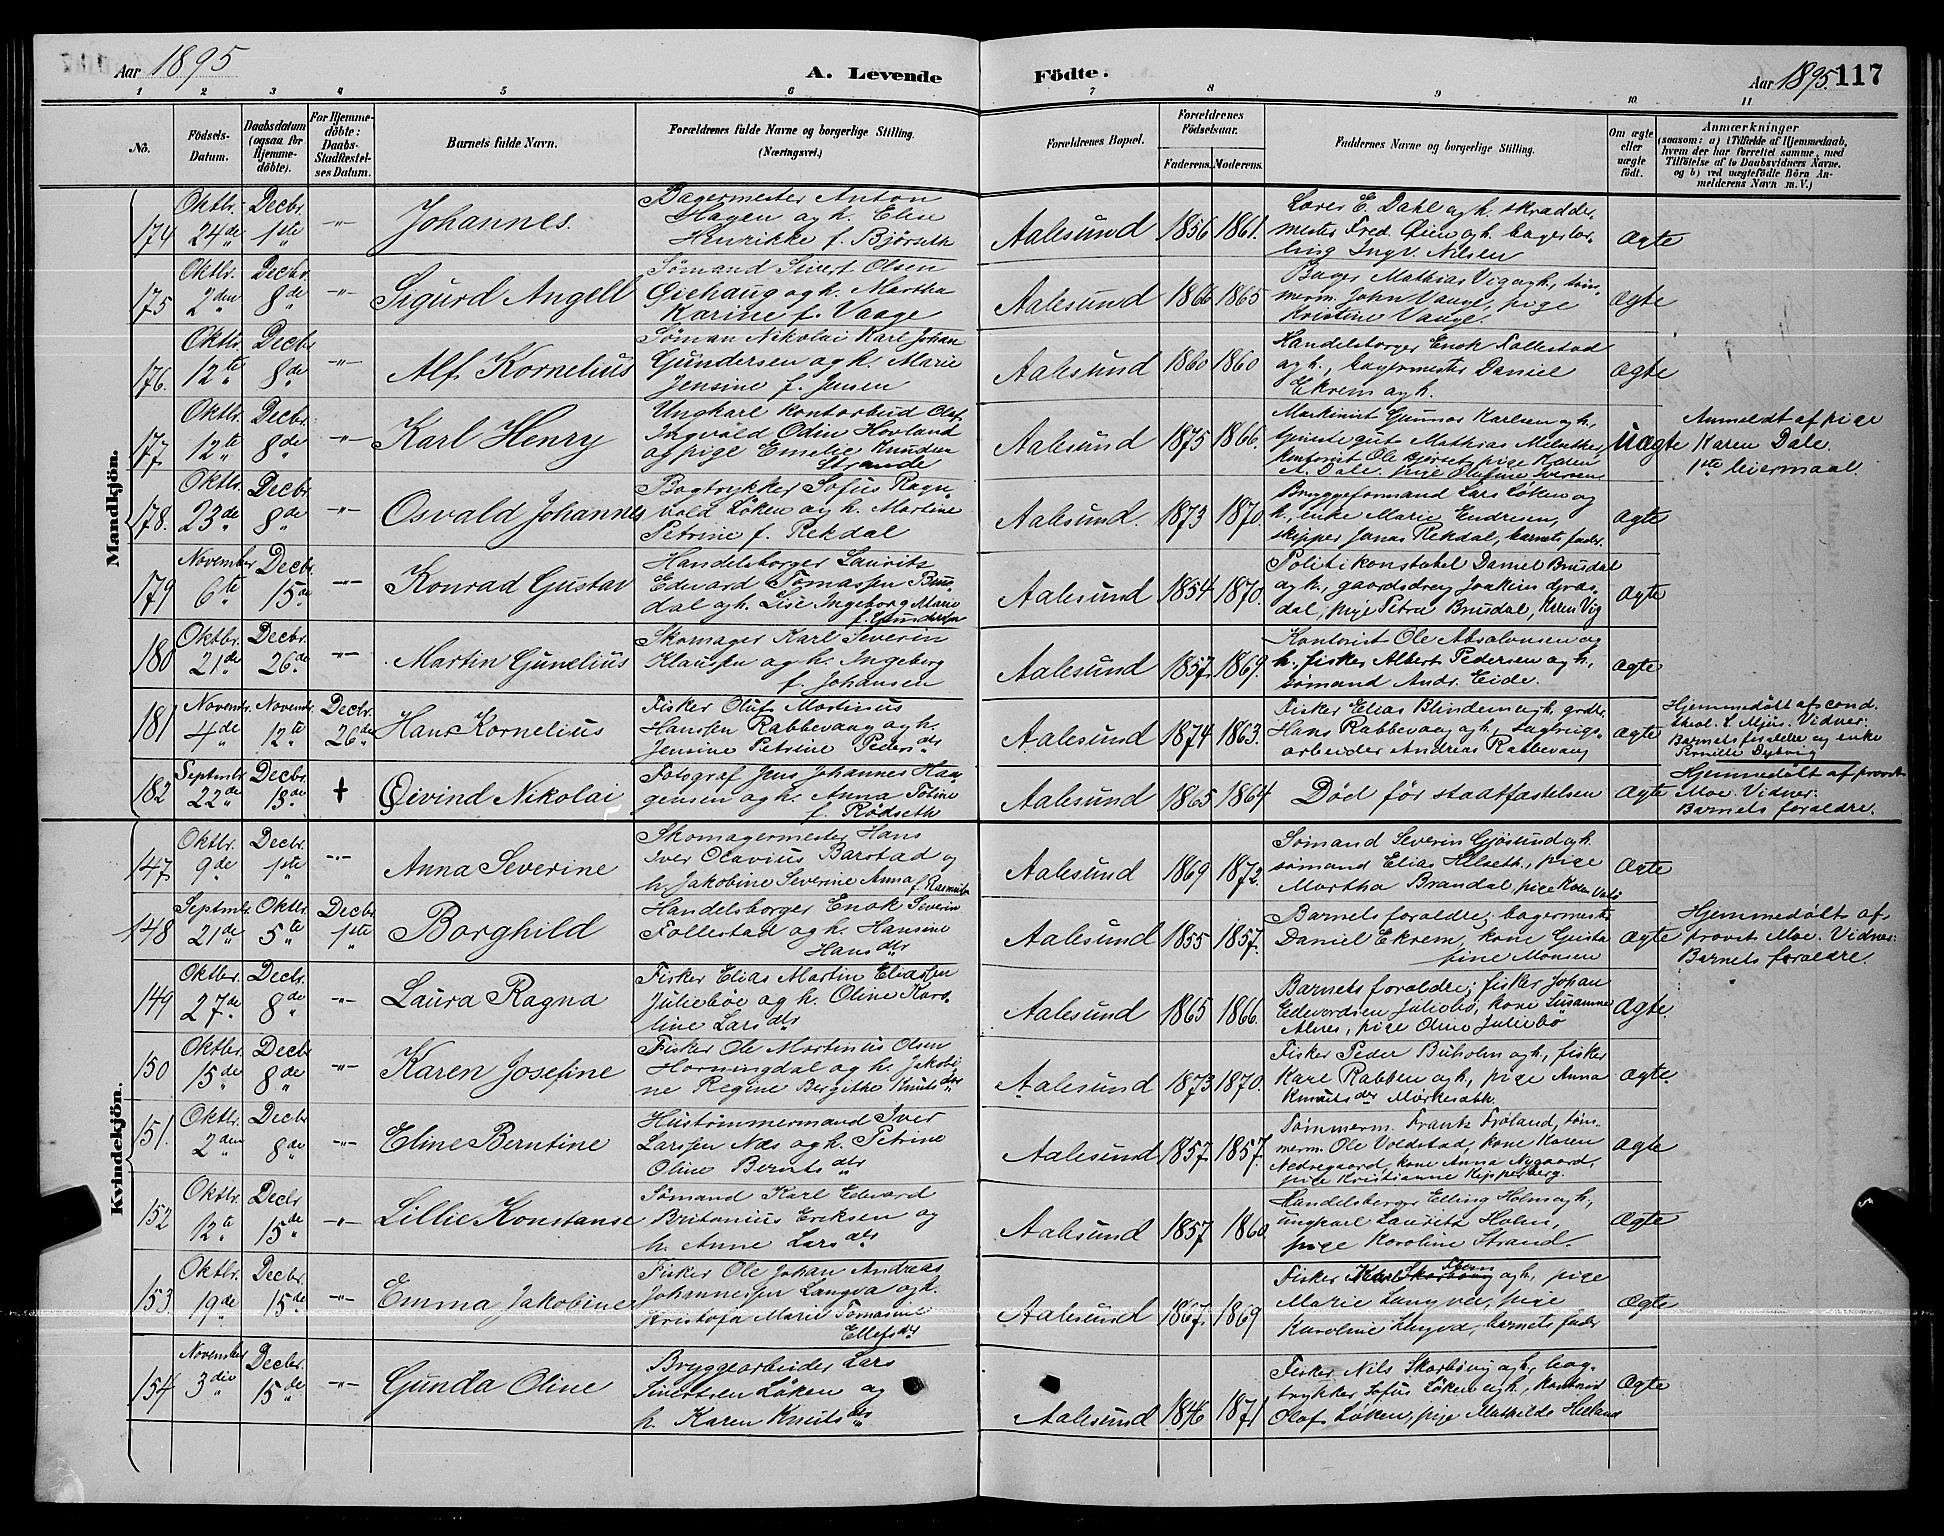 Aar 1895
A. Levende
Födte.
Aar 1895.
117
1 2 3 4 5 6 7 8 9 10 11
No.
Födsels-
Datum.
Daabsdatum
(ogsaa for
Hjemme-
döbte).
For Hjemme-
döbte:
Daabs-
Stadfæstel-
ses Datum.
Barnets fulde Navn.
Forældrenes fulde Navne og borgerlige Stilling.
(Næringsvei.)
Forældrenes Bopæl.
Forældrenes
Födselsaar.
Faderens. Moderens.
Faddernes Navne og borgerlige Stilling.
Om ægte
eller
uægte
födt.
Anmærkninger
(saasom: a) i Tilfælde af Hjemmedaab,
hvem der har forrettet samme, med
Tilföielse af to Daabsvidners Navne.
og b) ved uægtefödte Börn An-
melderens Navn m. V.)
Mandkjön.
174 Oktbr. 24de Decbr. 1ste -"- Johannes.
Bagermester Anton
Hagen og h. Elen
Henrikke f. Bjørseth
Aalesund 1856 1861.
Lærer E. Dahl og h. skrædder
mester Fred. Øien og h. bagerlær-
ling Ingv. Nilsen
Ægte
175 Oktbr. 2den Decbr. 8de -"- Sigurd Angell
Sømand Sivert Olsen
Giehaug og h. Martha
Karine f. Vaage
Aalesund 1866 1865
Bager Mathias Vig og h., tøm-
merm. John Vaage, pige
Kristine Vaage.
Ægte
176. Oktbr. 12te Decbr. 8de -"- Alf Kornelius
Søman Nikolai Karl Johan
Gundersen og h. Marie
Jensine f. Jensen
Aalesund 1860 1860
Handelsborger Enok Follestad
og h., bagermester Daniel
Ekrem og h.
Ægte
177. Oktbr. 12te Decbr. 8de -"- Karl Henry
Ungkarl kontorbeid Olaf
Ingvald Odin Hovland
og pige Emelie Knudsen
Strande
Aalesund 1875 1866.
Maskinist Gunnar Karlsen og h.,
gut Mathias
kontorist Ole pige Karen
A. Dale, pige Olefine Iversen
Uægte
Anmeldt af pige
Karen Dale.
1ste leiermaal.
178. Oktbr. 23de Decbr. 8de -"- Osvald Johannes
Bogtrykker Sofus Ragn-
vald Løken og h. Martine
Petrine f. Rekdal
Aalesund. 1873 1870.
Bryggeformand Lars Løken og
h., enke Marie Endresen,
skipper Jonas Rekdal, barnets fader.
Ægte
179 November 6te Decbr. 15de -"- Konrad Gustav
Handelsborger Laurits
Edvard Tomassen Brus-
dal og h. Lise Ingeborg Marie
f. Gundersen
Aalesund 1854 1870.
Politikonstabel Daniel Brusdal
og h., gaardsdreng Joakim
dal, pige Petra Brusdal, Karen Vig
Ægte
180 Oktbr. 21de Decbr. 26de -"- Martin Gunelius
Skomager Karl Severin
Klausen og h. Ingeborg
f. Johansen
Aalesund 1857. 1869.
Kontorist Ole Absalonsen og
h., fisker Albert Pedersen og h.,
sømand Andr. Eide.
Ægte
181 Novembr. 4de Novembr. 12te Decbr. 26de Hans Kornelius
Fisker Oluf Martinus
Hansen Rabbevaag og h.
Jensine Petrine Pedersdtr
Aalesund 1874 1863.
Fisker Elias Blindem og h. grdbr.
Hans Rabbevaag og h., sagbrugs-
arbeider Andreas Rabbevaag
Ægte
Hjemmedøbt af cand.
theol. L. Mjøs. Vidner:
Barnets forældre og enke
Pernille Dybvig
182 Septmbr. 22de Decbr. 13de + Øivind Nikolai
Fotograf Jens Johannes Haa-
gensen og h. Anna Tobine
f. Rødseth
Aalesund 1865 1864
Død før staatfæstelsen
Ægte
Hjemmedøbt af provst
Moe. Vidner:
Barnets forældre.
Kvindekjön.
147 Oktbr. 9de Decbr. 1ste -"- Anna Severine
Skomagermester Hans
Iver Olavius Barstad og
h. Jakobine Severine Anna
f. Rasmussen
Aalesund 1869 1872.
Sømand Severin Gjøsund og h.
sømand Elias Helseth, pige
Martha Brandal, pige Karen
Ægte
148 Septmbr. 21de Oktbr. 5te Decbr. 1ste Borghild
Handelsborger Enok Severin
Follestad og h. Hansine
Hansdtr
Aalesund 1855 1857.
Barnets forældre, bagermester
Daniel Ekrem, kone Gusta
fine Monsen
Ægte
Hjemmedøbt af
provst Moe. Vidner:
Barnets forældre.
149 Oktbr. 27de Decbr. 8de -"- Laura Ragna
Fisker Elias Martin Eliassen
Juliebøe og h. Oline Karo-
line Larsdtr
Aalesund 1865 1866.
Barnets forældre, fisker Johan
Edevardsen Juliebø, kone Susanne
Alnes, pige Oline Juliebø
Ægte.
150 Oktbr. 15de Decbr. 8de -"- Karen Josefine
Fisker Ole Martinus Olsen
Horningdal og h. Jakobi-
ne Regine Bergithe Knutsdtr.
Aalesund 1873 1870.
Fisker Peder Buholm og h., fisker
Karl Rabben og h., pige Anna
Knutsdtr
Ægte
151. Oktbr. 2den Decbr. 8de -"- Eline Berntine
Hustømmermand Iver
Larssen Næs og h. Petrine
Oline Berntsdtr
Aalesund 1857. 1857.
Tømmerm. Frantz Frøland, tøm-
merm. Ole Voldstad, kone Karen
Nedregaard, kone Anna Nygaard,
pige Kristianne Kipperberg.
Ægte
152 Oktbr. 12te Decbr. 15de -"- Lillie Konstanse
Sømand Karl Edvard
Britanius Eriksen og
h. Anne Larsdtr
Aalesund 1857 1860
Handelsborger Elling Holm og h.,
ungkarl Laurits Holm,
pige Karoline Strand.
Ægte
153. Oktbr. 19de Decbr. 15de -"- Emma Jakobine
Fisker Ole Johan Andreas
Johannessen Langva og h.
Kristofa Marie Tomasine
Ellefsdtr
Aalesund 1867. 1869
Fisker Karl Skarbøvig og h., pige
Marie Langva, pige
Karoline Langva, barnets fader
Ægte
154 November 3die Decbr. 15de -"- Gunda Oline
Bryggearbeider Lars
Sivertsen Løken og
h. Karen Knutsdtr
Aalesund 1846 1871
Fisker Nils Skarbøvig og h., bog-
trykker Sofus Løken og h., kontorist
Olaf Løken, pige Mathilde Helland
Ægte